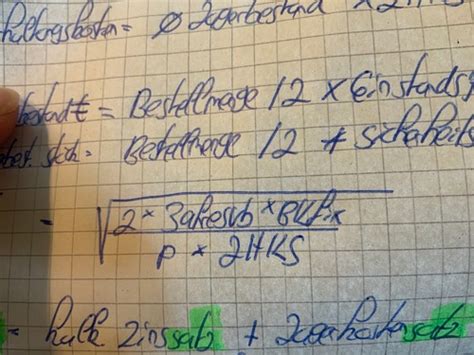 haltungskosten = Ø Lagerbestand x LHKS
bestand € = Bestellmenge / 2 x Einstands
best. sich. = Bestellmenge / 2 + Sicherheits
- √ 2 x Jahresvb x BKfix
P x LHKS
= kalk Zinssatz + Lagerkostensatz